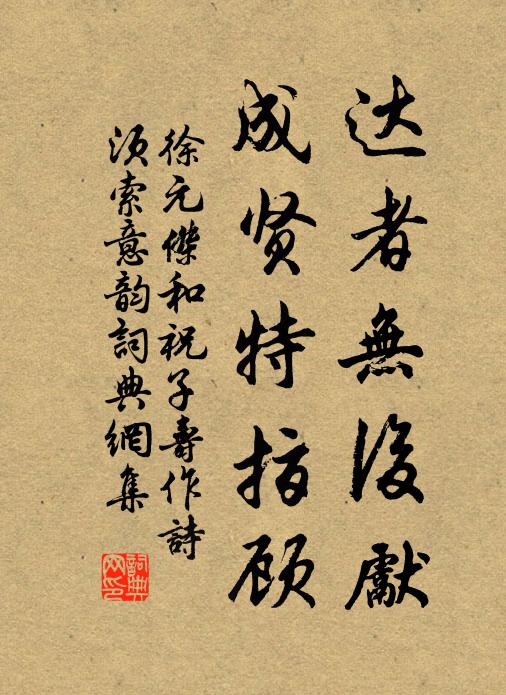 达者無後獻
成贤特指顾
徐元傑和祝子壽作詩
须索意韵詞典網集
詞典网印